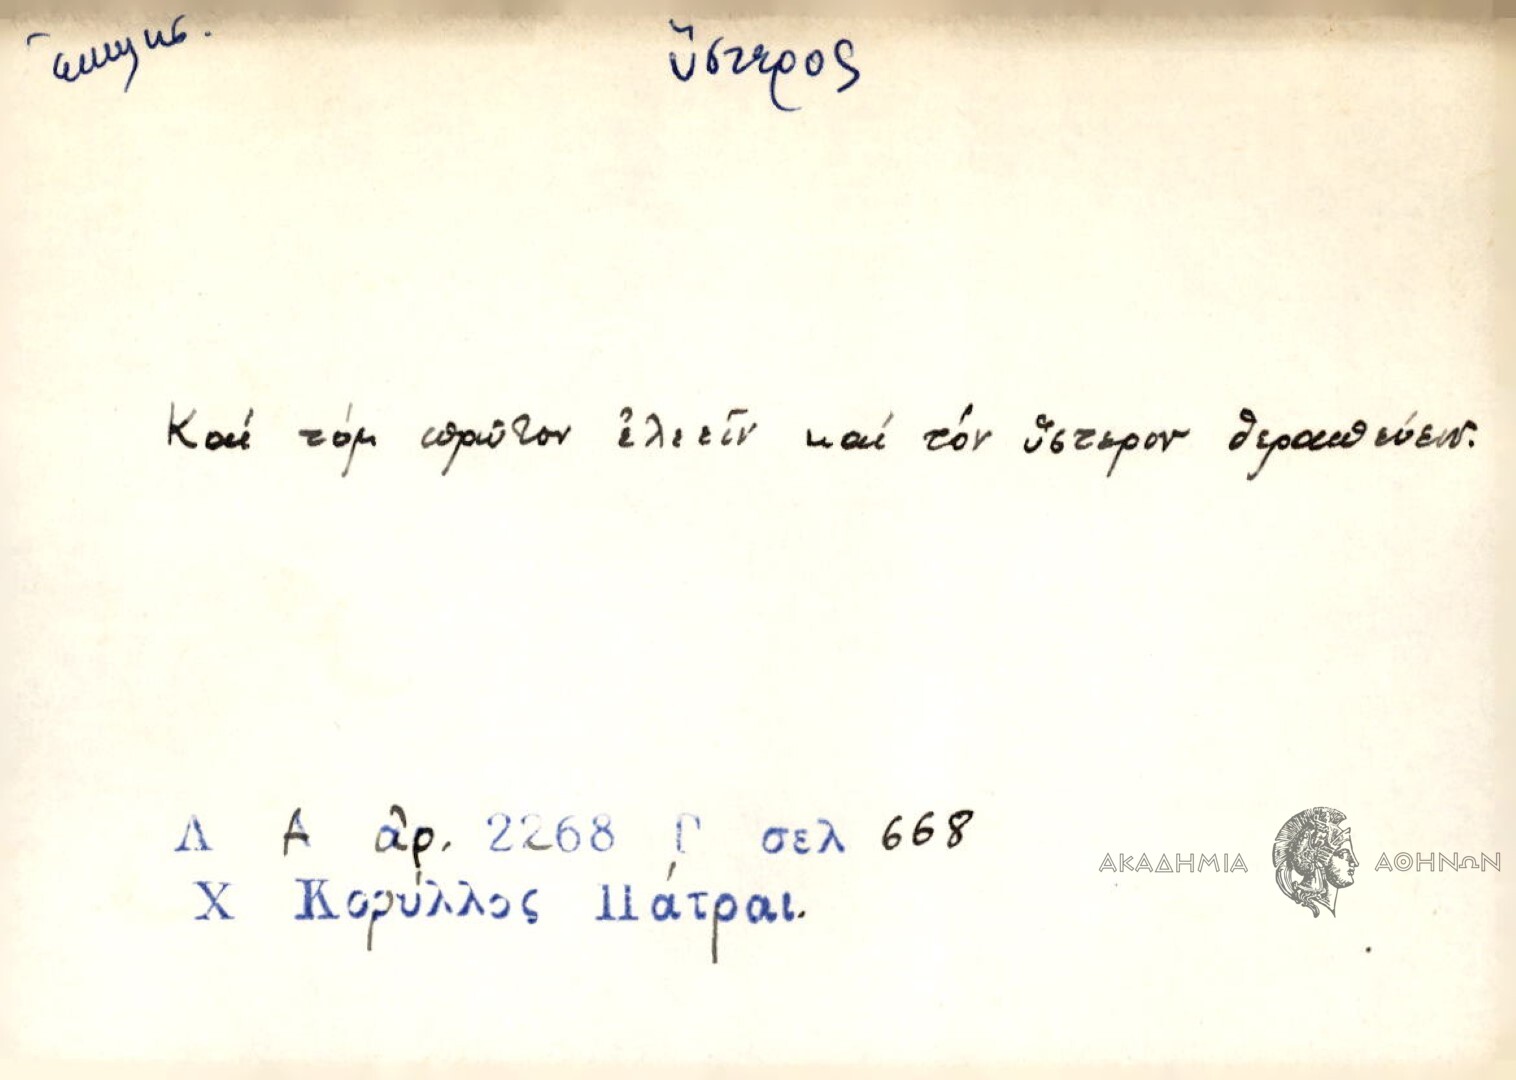 ὕστερος
Καί τόμ πρῶτον ἐλεεῖν καί τόν ὕστερον θεραπεύειν.
Λ Α ἀρ. 2268 Γ σελ 668
Χ Κορύλλος Πάτραι.
ΑΚΑΔΗΜΙΑ ΑΘΗΝΩΝ